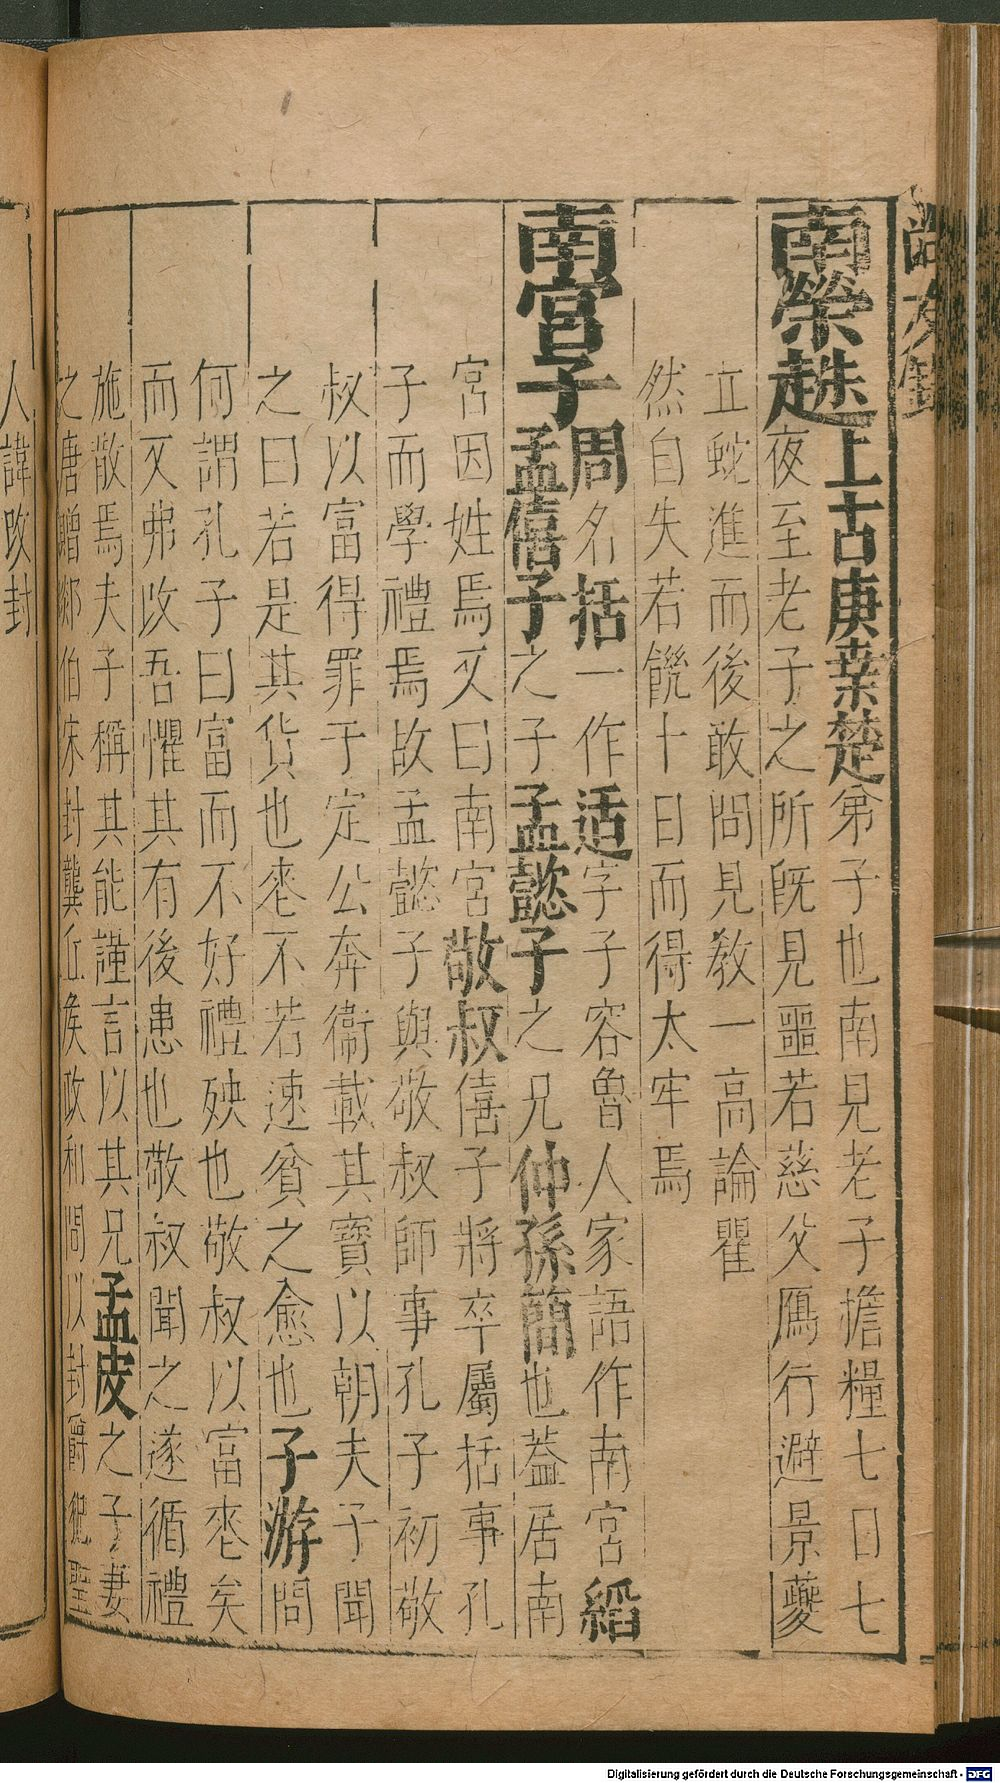 尚友錄
南榮趎上古庚桒楚弟子也南見老子擔糧七日七
夜至老子之所旣見噩若慈父鴈行避景夔
立蛇進而後敢問見教一高論瞿
然自失若饑十日而得太牢焉
南宮子周名括一作适字子容魯人家語作南宮縚
孟僖子之子孟懿子之兄仲孫簡也葢居南
宮因姓焉又曰南宮敬叔僖子將卒屬括事孔
子而學禮焉故孟懿子與敬叔師事孔子初敬
叔以富得罪于定公奔衞載其寶以朝夫子聞
之曰若是其貨也䘮不若速貧之愈也子游問
何謂孔子曰富而不好禮殃也敬叔以富䘮矣
而又弗改吾懼其有後患也敬叔聞之遂循禮
施散焉夫子稱其能謹言以其兄孟皮之子妻
之唐贈郯伯宋封龔丘侯政和間以封爵犯聖
人諱改封
Digitalisierung gefördert durch die Deutsche Forschungsgemeinschaft - DFG